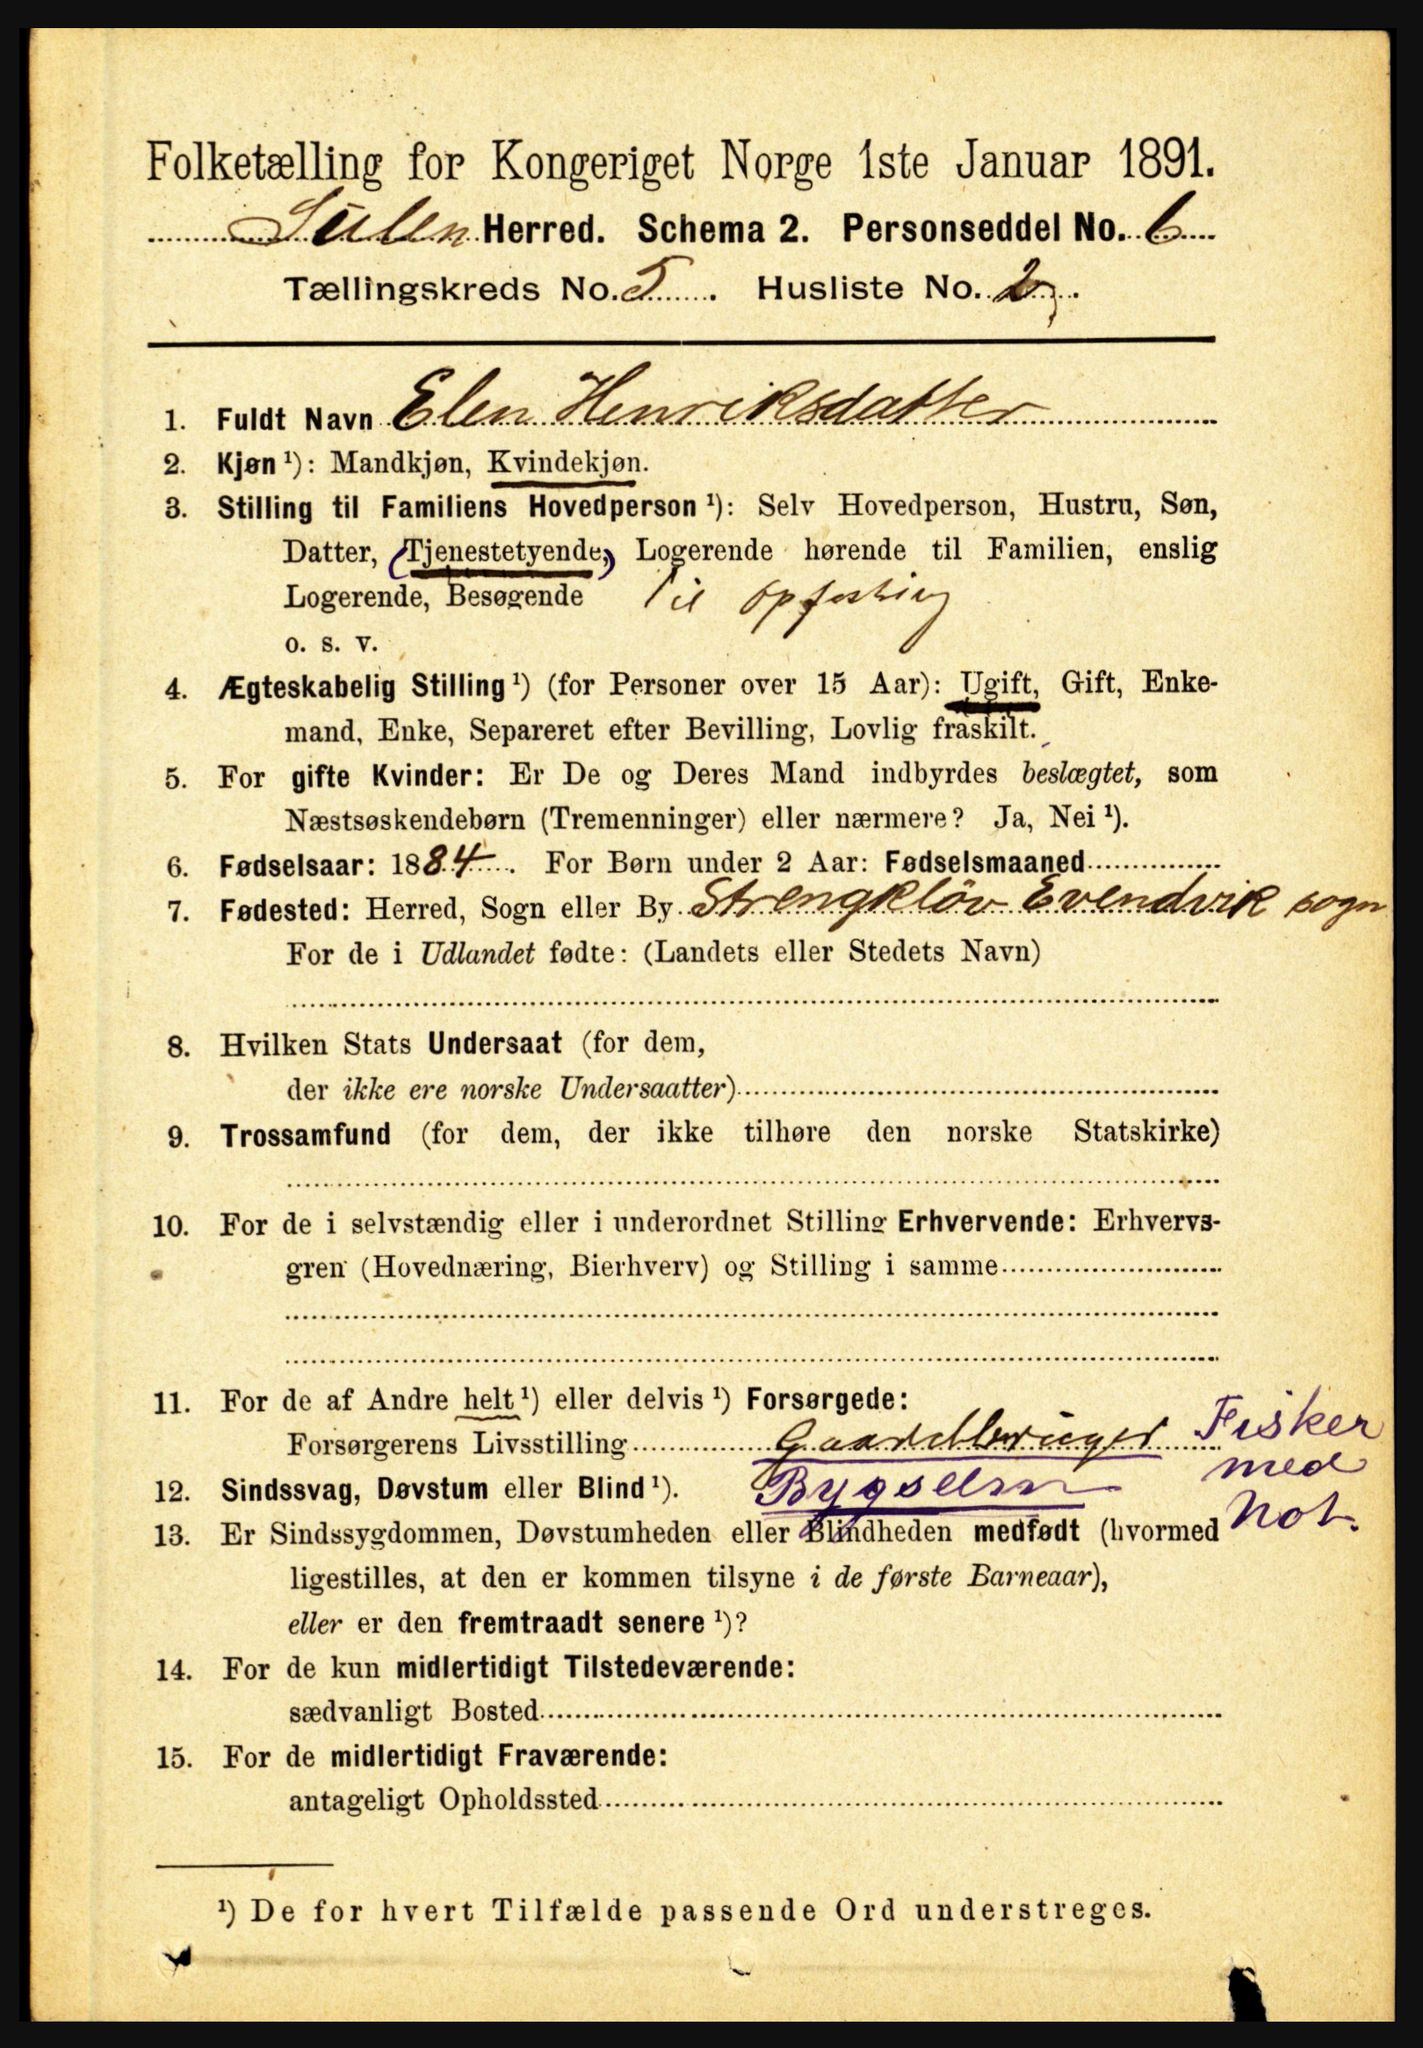 Folketælling for Kongeriget Norge 1ste Januar 1891.
Sulen Herred. Schema 2. Personseddel No. 6
Tællingskreds No. 5. Husliste No. 2.
1. Fuldt Navn Elen Henriksdatter
2. Kjøn ¹): Mandkjøn, Kvindekjøn.
3. Stilling til Familiens Hovedperson ¹): Selv Hovedperson, Hustru, Søn,
Datter, (Tjenestetyende,) Logerende hørende til Familien, enslig
Logerende, Besøgende Til opfostring
o. s. v.
4. Ægteskabelig Stilling ¹) (for Personer over 15 Aar): Ugift, Gift, Enke-
mand, Enke, Separeret efter Bevilling, Lovlig fraskilt.
5. For gifte Kvinder: Er De og Deres Mand indbyrdes beslægtet, som
Næstsøskendebørn (Tremenninger) eller nærmere? Ja, Nei ¹).
6. Fødselsaar: 1884. For Børn under 2 Aar: Fødselsmaaned
7. Fødested: Herred, Sogn eller By Strengkløv Evendvik sogn
For de i Udlandet fødte: (Landets eller Stedets Navn)
8. Hvilken Stats Undersaat (for dem,
der ikke ere norske Undersaatter)
9. Trossamfund (for dem, der ikke tilhøre den norske Statskirke)
10. For de i selvstændig eller i underordnet Stilling Erhvervende: Erhvervs-
gren (Hovednæring, Bierhverv) og Stilling i samme
11. For de af Andre helt ¹) eller delvis ¹) Forsørgede:
Forsørgerens Livsstilling Gaardbruger Fisker
med
12. Sindssvag, Døvstum eller Blind ¹). Bygselm Not.
13. Er Sindssygdommen, Døvstumheden eller Blindheden medfødt (hvormed
ligestilles, at den er kommen tilsyne i de første Barneaar),
eller er den fremtraadt senere ¹)?
14. For de kun midlertidigt Tilstedeværende:
sædvanligt Bosted
15. For de midlertidigt Fraværende:
antageligt Opholdssted
¹) De for hvert Tilfælde passende Ord understreges.